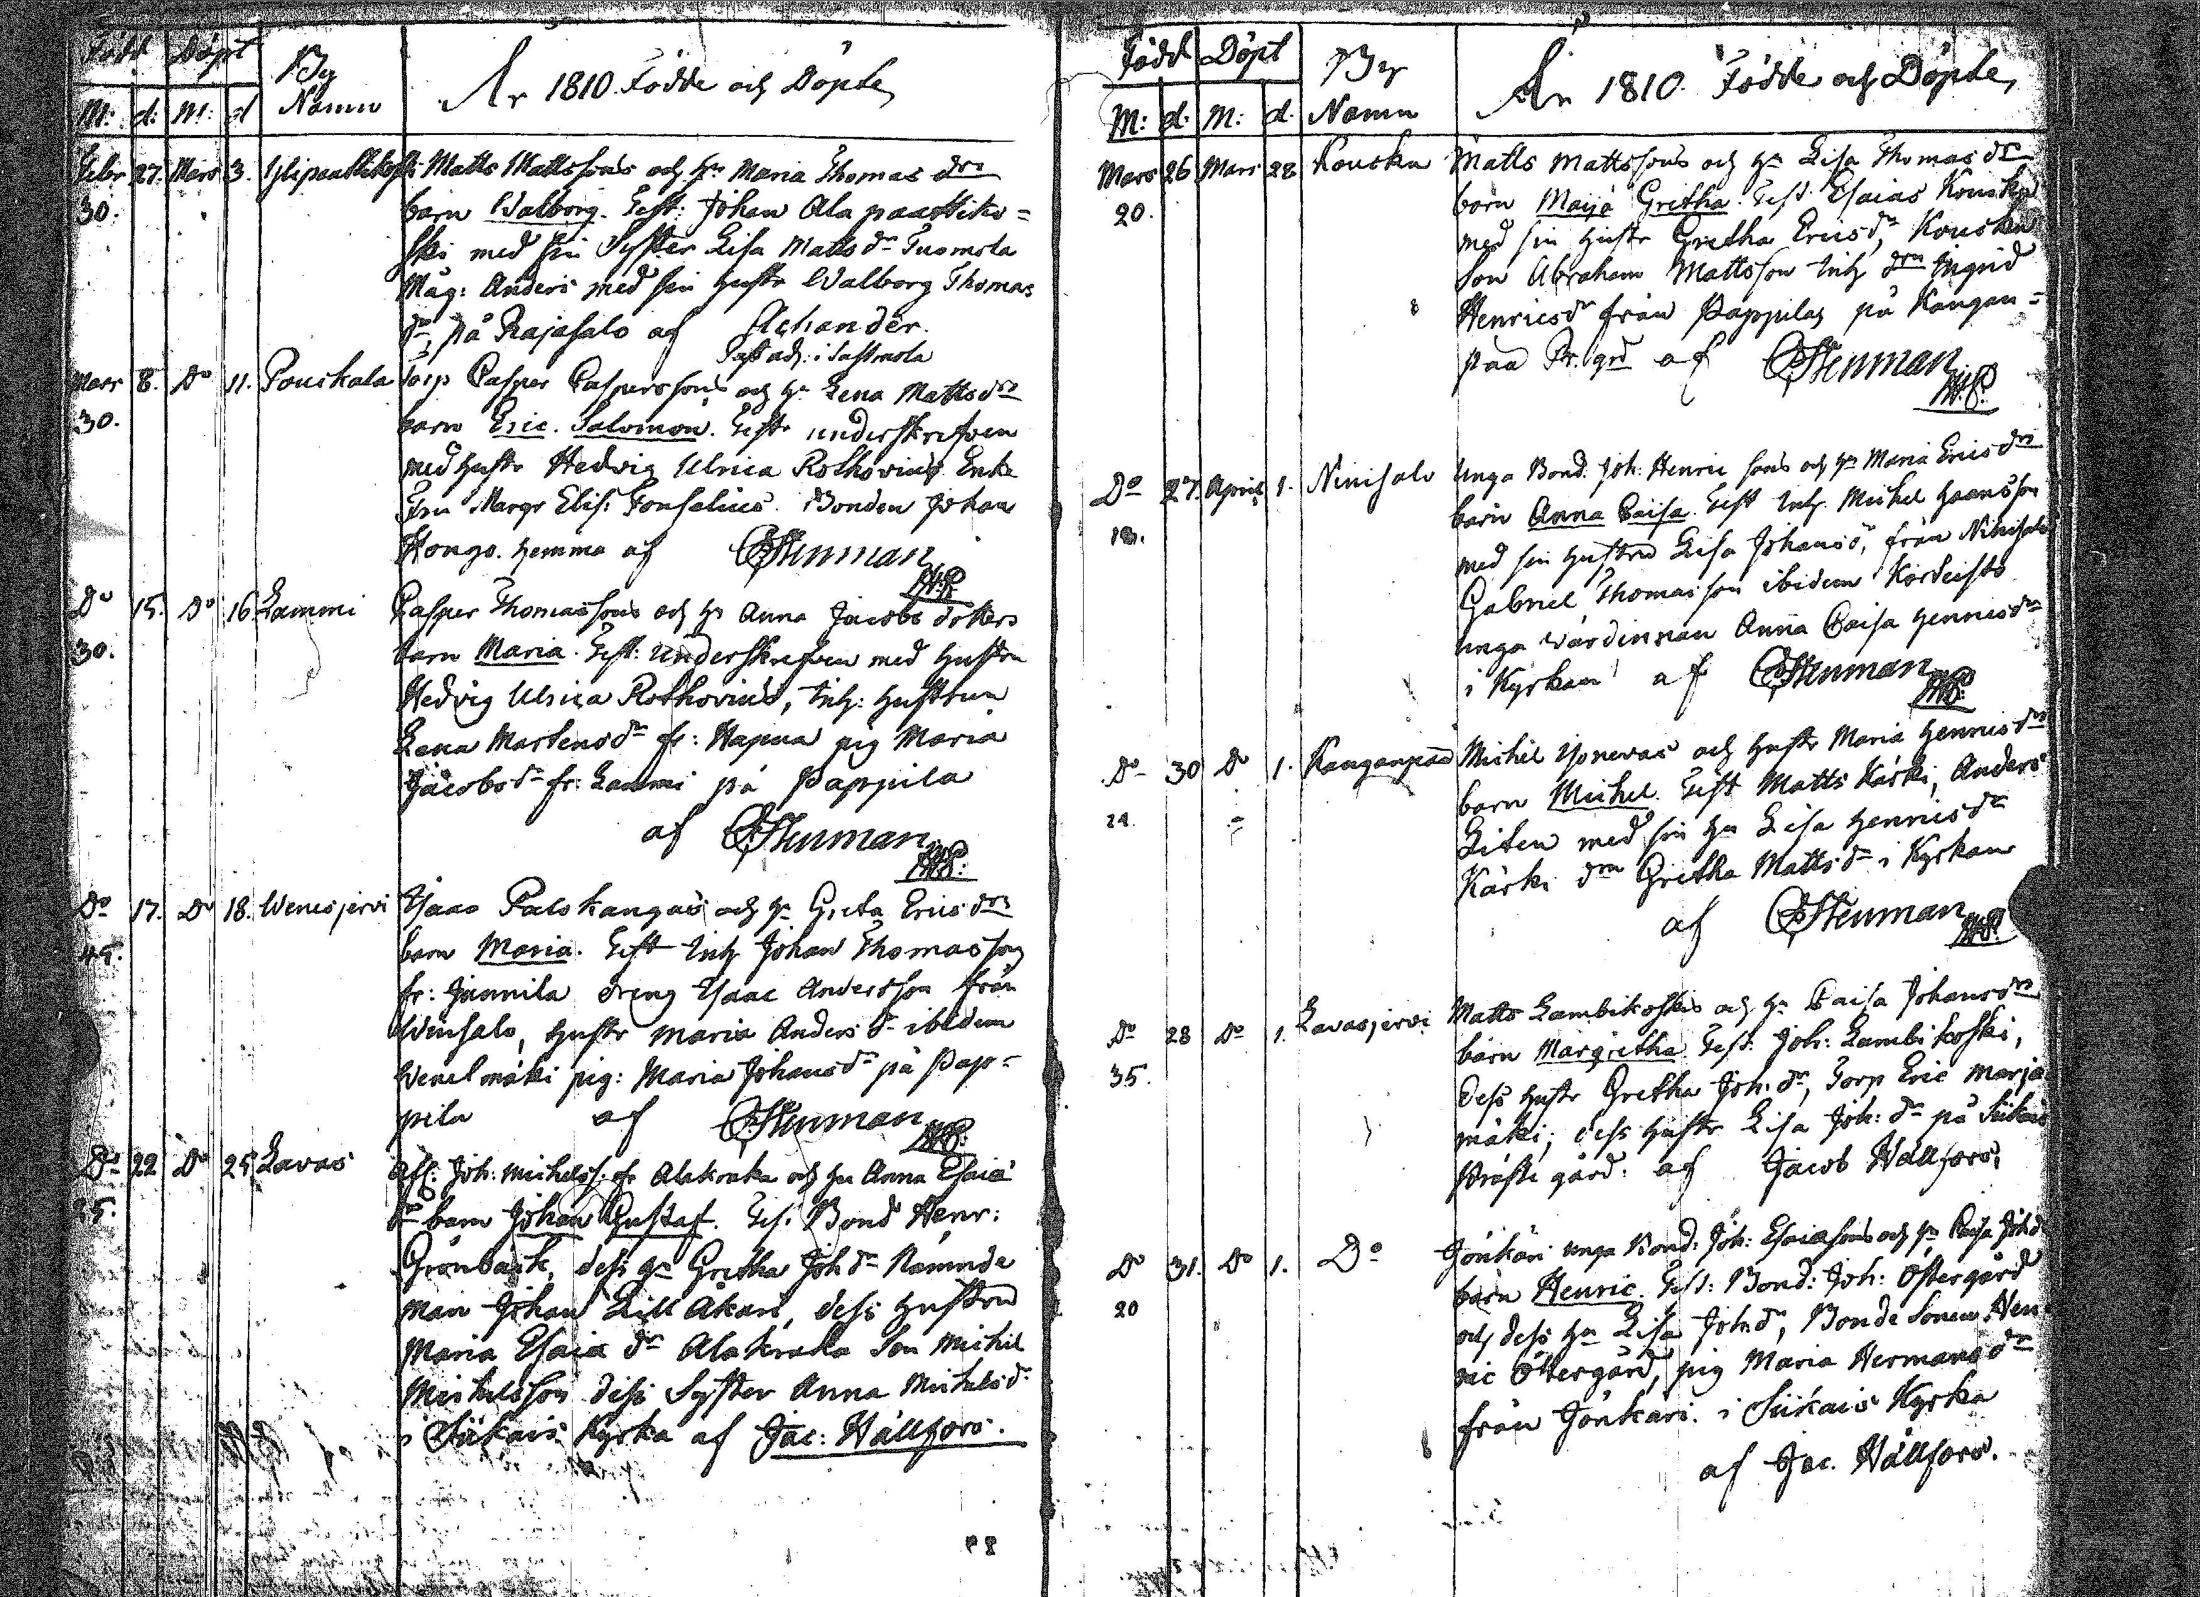 Född Döpt By År 1810. Födde och Döpte,
M: d: M: d Namn
Febr 27. Mars 3. Matts Mattssons och h:u Maria Thomas dr:s
30. barn Walborg. Test: Johan Ala paastiko=
ski med sin Syster Lisa Matts dr Tuomola
Måg: Anders med sin hustr Walborg Thomas
dr, på Rajasalo af Achander.
Past adj: i Sastmola
Mars 8. Do 11. Pouskala Torp Casper Casperssons och h:u Lena Mattsdrs
30. barn Eric. Salomon. Test: underskrefven
med hustr Hedvig Ulrica Rothovius, Enke
Fru Margr Elis: Fonselius. Bonden Johan
Hongo. hemma af CStenman
Do 15. Do 16 Lammi Casper Thomassons och h: Anna Jacobs dotters
30. barn Maria. Test: Underskrefven med Hustru
Hedvig Ulrica Rothovius, Inh: hustrun
Lena Martensdr fr: Hapua pig Maria
Jacobsdr fr: Lammi på Pappila
af CStenman
Do 17. Do 18. Wenesjervi Isaac Palokangas och h: Greta Ericsdrs
45. barn Maria. Test Inh Johan Thomasson
fr: Junnila dreng Isaac Andersson från
hustr Maria Anders dr ibidem
pig: Maria Johansdr på Pap=
pila af CStenman
Do 22 Do 25 Lavas Joh: Michelss: fr Alakraka och h:u Anna Esaiæ
25. dr barn Johan Gustaf. Tes: Bond Henr:
Grönback, dess h: Gretha Joh dr Nämnde
man Johan Lill Åkari, dess hustru
Maria Esaiæ dr Alakraka Son Michel
Michelsson dess Syster Anna Michelsdr
i Siikais Kyrka af Jac: Hällfors.
Född Döpt By År 1810. Födde och Döpte,
M: d. M: d. Namn
Mars 26 Mars 28 Kouska Matts Mattssons och h: Lisa Thomas dr
20. barn Maija Gretha. Test Esaias Kouska
med sin hustr Gretha Ericsdr, Kouska
Son Abraham Mattsson Inh drn Ingrid
Henricsdr från Pappilas på Kangan=
pää Pr. grd af CStenman
Do 27. April 1. Ninisalo Unga Bond. Joh: Henric sons och h: Maria Ericsdrs
barn Anna Caisa. Test Inh. Michel Haansson
med sin hustru Lisa Johans d, från Ninisalo
Gabriel Thomasson ibidem
unga värdinnan Anna Caisa Henricsdr
i Kyrkan af CStenman
Do 30 Do 1. Kanganpää Michel och hustr Maria Henricsdrs
24. barn Michel. Test Matts Kärki, Anders
Liten med sin h:u Lisa Henricsdr
Kärki drn Gretha Mattsdr i Kyrkan
af CStenman
Do 28 Do 1. Lavasjervi Matts Lambikoskis och h: Caisa Johansdrs
35. barn Margretha. Test: Joh: Lambikoski,
dess hustr Gretha Joh: dr, Torp Eric Marja
mäki, dess hustr Lisa Joh: dr på Siikais
Präste gård. af Jacob Hällfors.
Do 31. Do 1. Do Jönkäri unga Bond: Joh: Esaiæsons och h: Caisa Joh d
20 barn Henric. Test: Bond: Joh: Östergård
och dess h:u Lisa Joh:dr, Bonde Sonen Hen
ric Östergård, pig Maria Hermansdr
från Jönkäri. i Siikais Kyrka
af Jac. Hällfors.